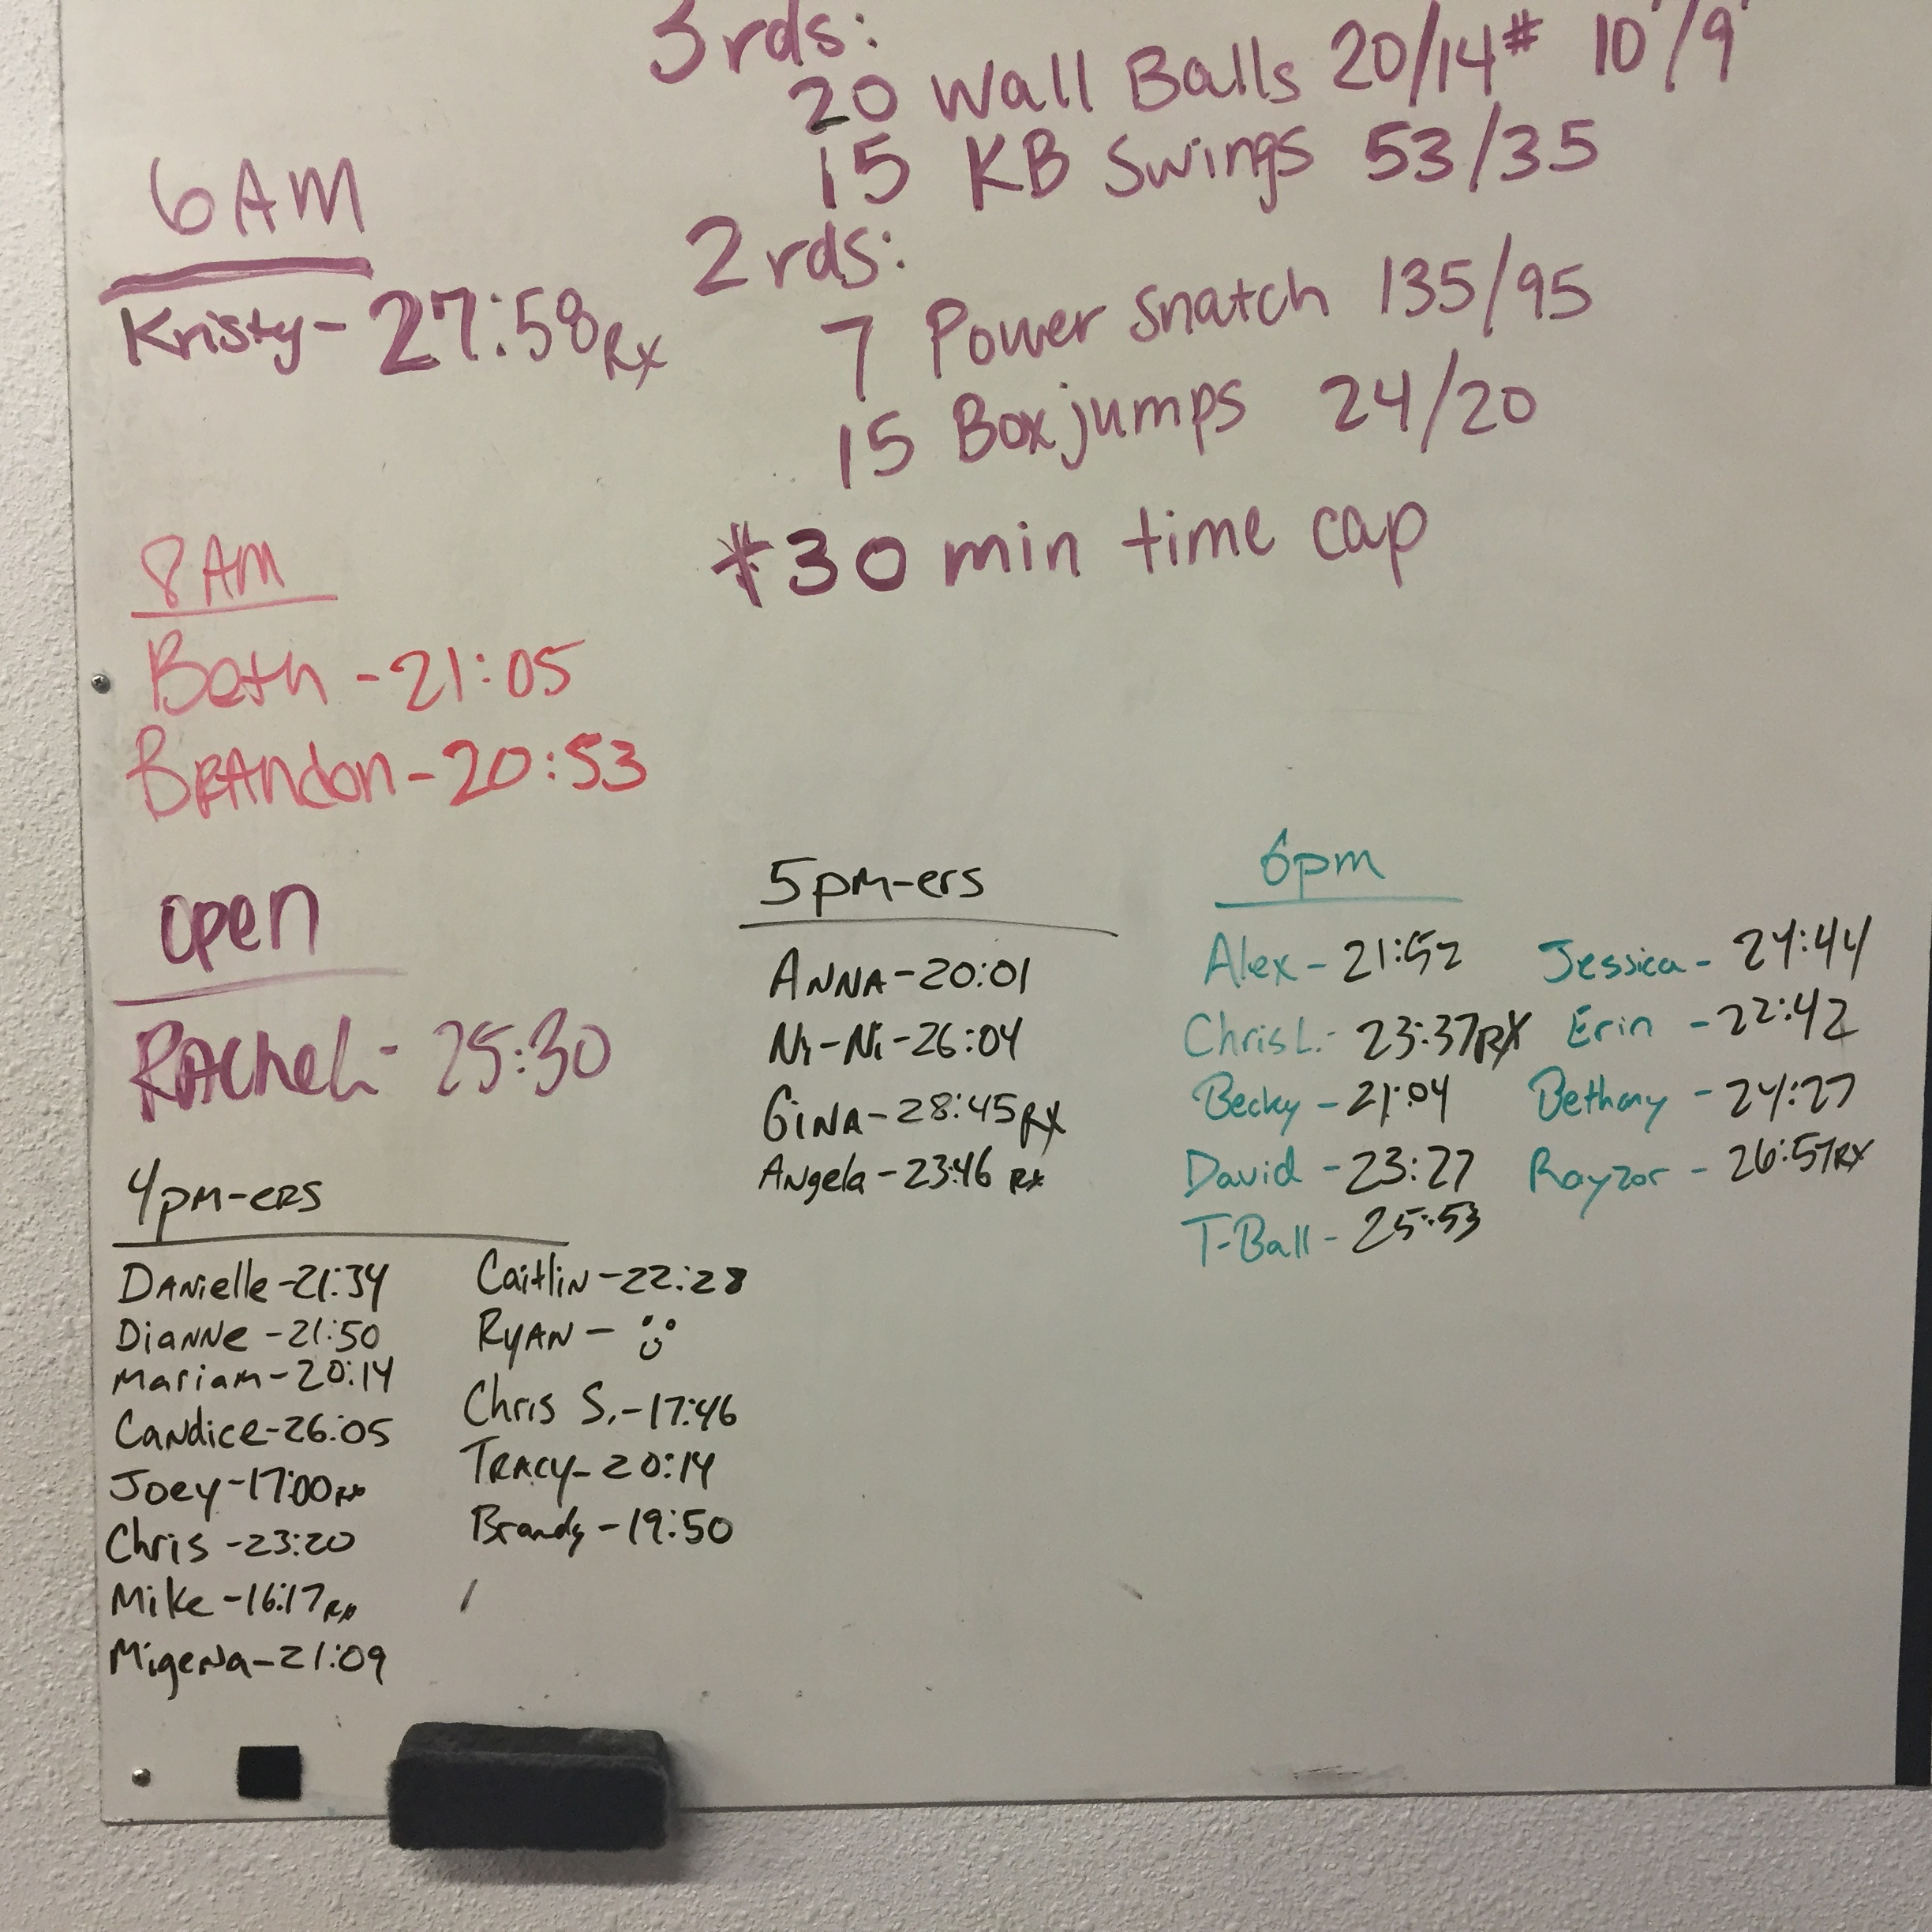 3rds:
20 Wall Balls 20/14# 10'/9'
15 KB Swings 53/35
2 rds:
7 Power Snatch 135/95
15 Box jumps 24/20
*30 min time cap
6AM
Kristy- 27:58 Rx
8AM
Beth - 21:05
BRAndon - 20:53
open
RAcheL - 25:30
4pm-ers
Danielle - 21:34
Dianne - 21:50
Mariam - 20:14
Candice - 26:05
Joey - 17:00 Rx
Chris - 23:20
Mike - 16:17 Rx
Migena - 21:09
Caitlin - 22:28
Ryan -
Chris S. - 17:46
Tracy - 20:14
Brandy - 19:50
5pm-ers
ANNA - 20:01
Ni-Ni - 26:04
GiNA - 28:45 RX
Angela - 23:46 Rx
6pm
Alex - 21:52
Chris L. - 23:37 RX
Becky - 21:04
David - 23:27
T-Ball - 25:53
Jessica - 24:44
Erin - 22:42
Bethany - 24:27
Rayzor - 26:57 RX